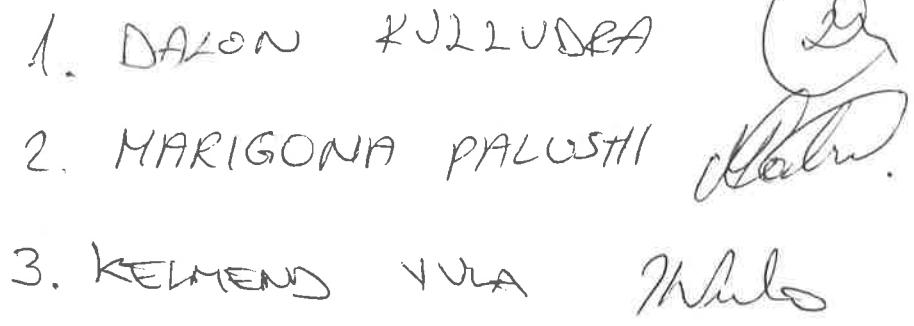 1. DALON KULLUDRA
2. MARIGONA PALUSHI
3. KELMEND VULA